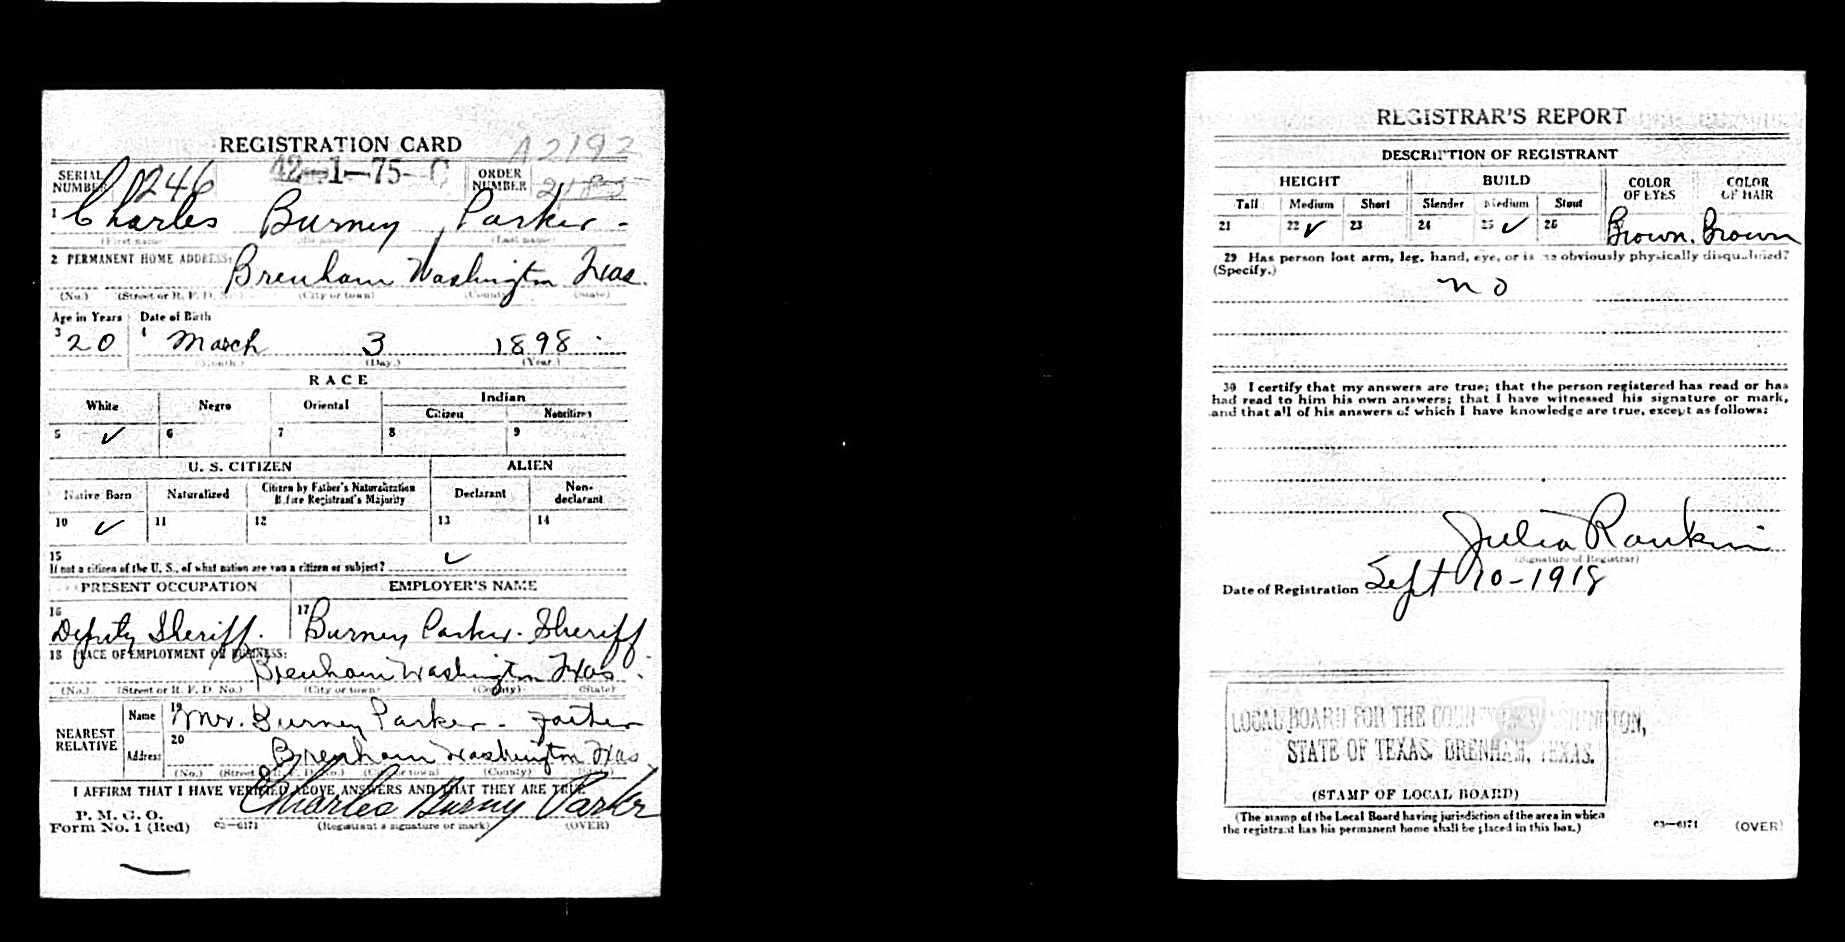 REGISTRATION CARD A2192
SERIAL NUMBER 1246 42-1-75-C ORDER NUMBER
1 Charles Burney Parker
(First name) (Middle name) (Last name)
2 PERMANENT HOME ADDRESS:
Brenham Washington Texas.
(No.) (Street or R. F. D. No.) (City or town) (County) (State)
Age in Years Date of Birth
3 20 4 March 3 1898
(Month.) (Day.) (Year.)
RACE
White Negro Oriental Indian
Citizen Noncitizen
5 ✓ 6 7 8 9
U. S. CITIZEN ALIEN
Native Born Naturalized Citizen by Father's Naturalization Before Registrant's Majority Declarant Non-declarant
10 ✓ 11 12 13 14
15 ✓
If not a citizen of the U. S., of what nation are you a citizen or subject?
PRESENT OCCUPATION EMPLOYER'S NAME
16 Deputy Sheriff. 17 Burney Parker. Sheriff
18 PLACE OF EMPLOYMENT OR BUSINESS:
Brenham Washington Texas
(No.) (Street or R. F. D. No.) (City or town) (County) (State)
NEAREST RELATIVE Name 19 Mr. Burney Parker - Father
Address 20 Brenham Washington Texas
(No.) (Street or R. F. D. No.) (City or town) (County) (State)
I AFFIRM THAT I HAVE VERIFIED ABOVE ANSWERS AND THAT THEY ARE TRUE
P. M. G. O.
Form No. 1 (Red) 03-6171 Charles Burny Parker
(Registrant's signature or mark) (OVER)
REGISTRAR'S REPORT
DESCRIPTION OF REGISTRANT
HEIGHT BUILD COLOR OF EYES COLOR OF HAIR
Tall Medium Short Slender Medium Stout
21 22 ✓ 23 24 25 ✓ 26 Brown. Brown
29 Has person lost arm, leg, hand, eye, or is he obviously physically disqualified?
(Specify.)
no
30 I certify that my answers are true; that the person registered has read or has
had read to him his own answers; that I have witnessed his signature or mark,
and that all of his answers of which I have knowledge are true, except as follows:
Julia Rankin
(Signature of Registrar)
Date of Registration Sept 10-1918
LOCAL BOARD FOR THE COUNTY OF WASHINGTON,
STATE OF TEXAS, BRENHAM, TEXAS.
(STAMP OF LOCAL BOARD)
(The stamp of the Local Board having jurisdiction of the area in which
the registrant has his permanent home shall be placed in this box.)
03-6171 (OVER)